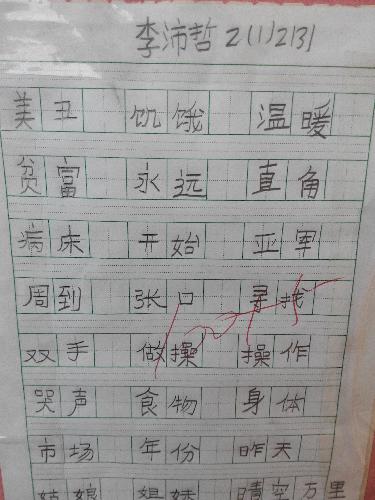 李沛哲 2(1)2131
美丑 饥饿 温暖
贫富 永远 直角
病床 开始 亚军
周到 张口 寻找
双手 做操 操作
哭声 食物 身体
市场 年份 昨天
姑娘 姐妹 晴空万里